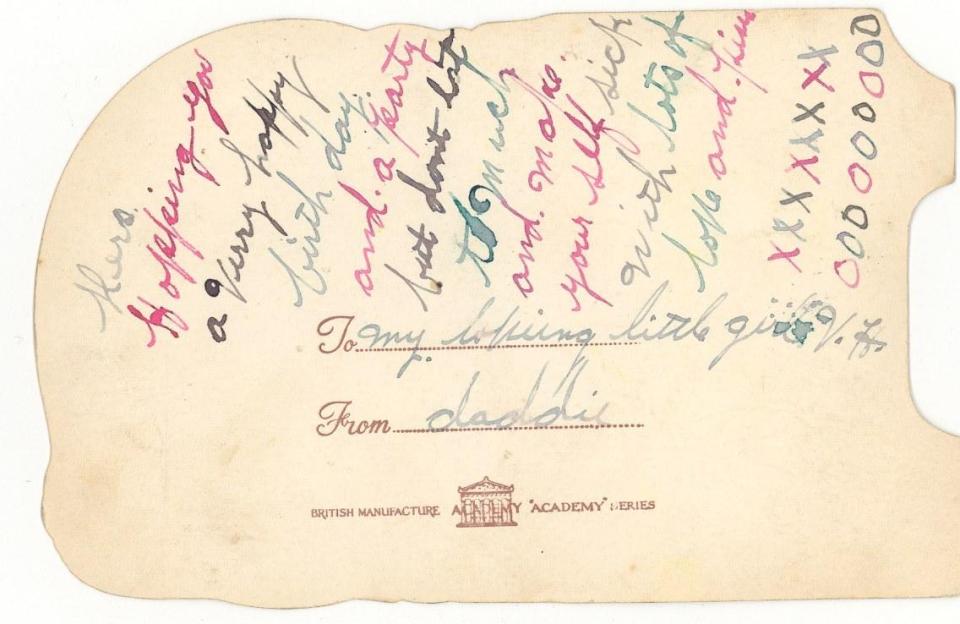 hers
Hopping you
a verry happy
birth day.
and. a party
but dont eat
to much
and. make.
your self sick
with lots of
love and.
xxxxxxxx
00000000
To my loveing little girl V. H.
From daddie
BRITISH MANUFACTURE ACADEMY "ACADEMY" SERIES